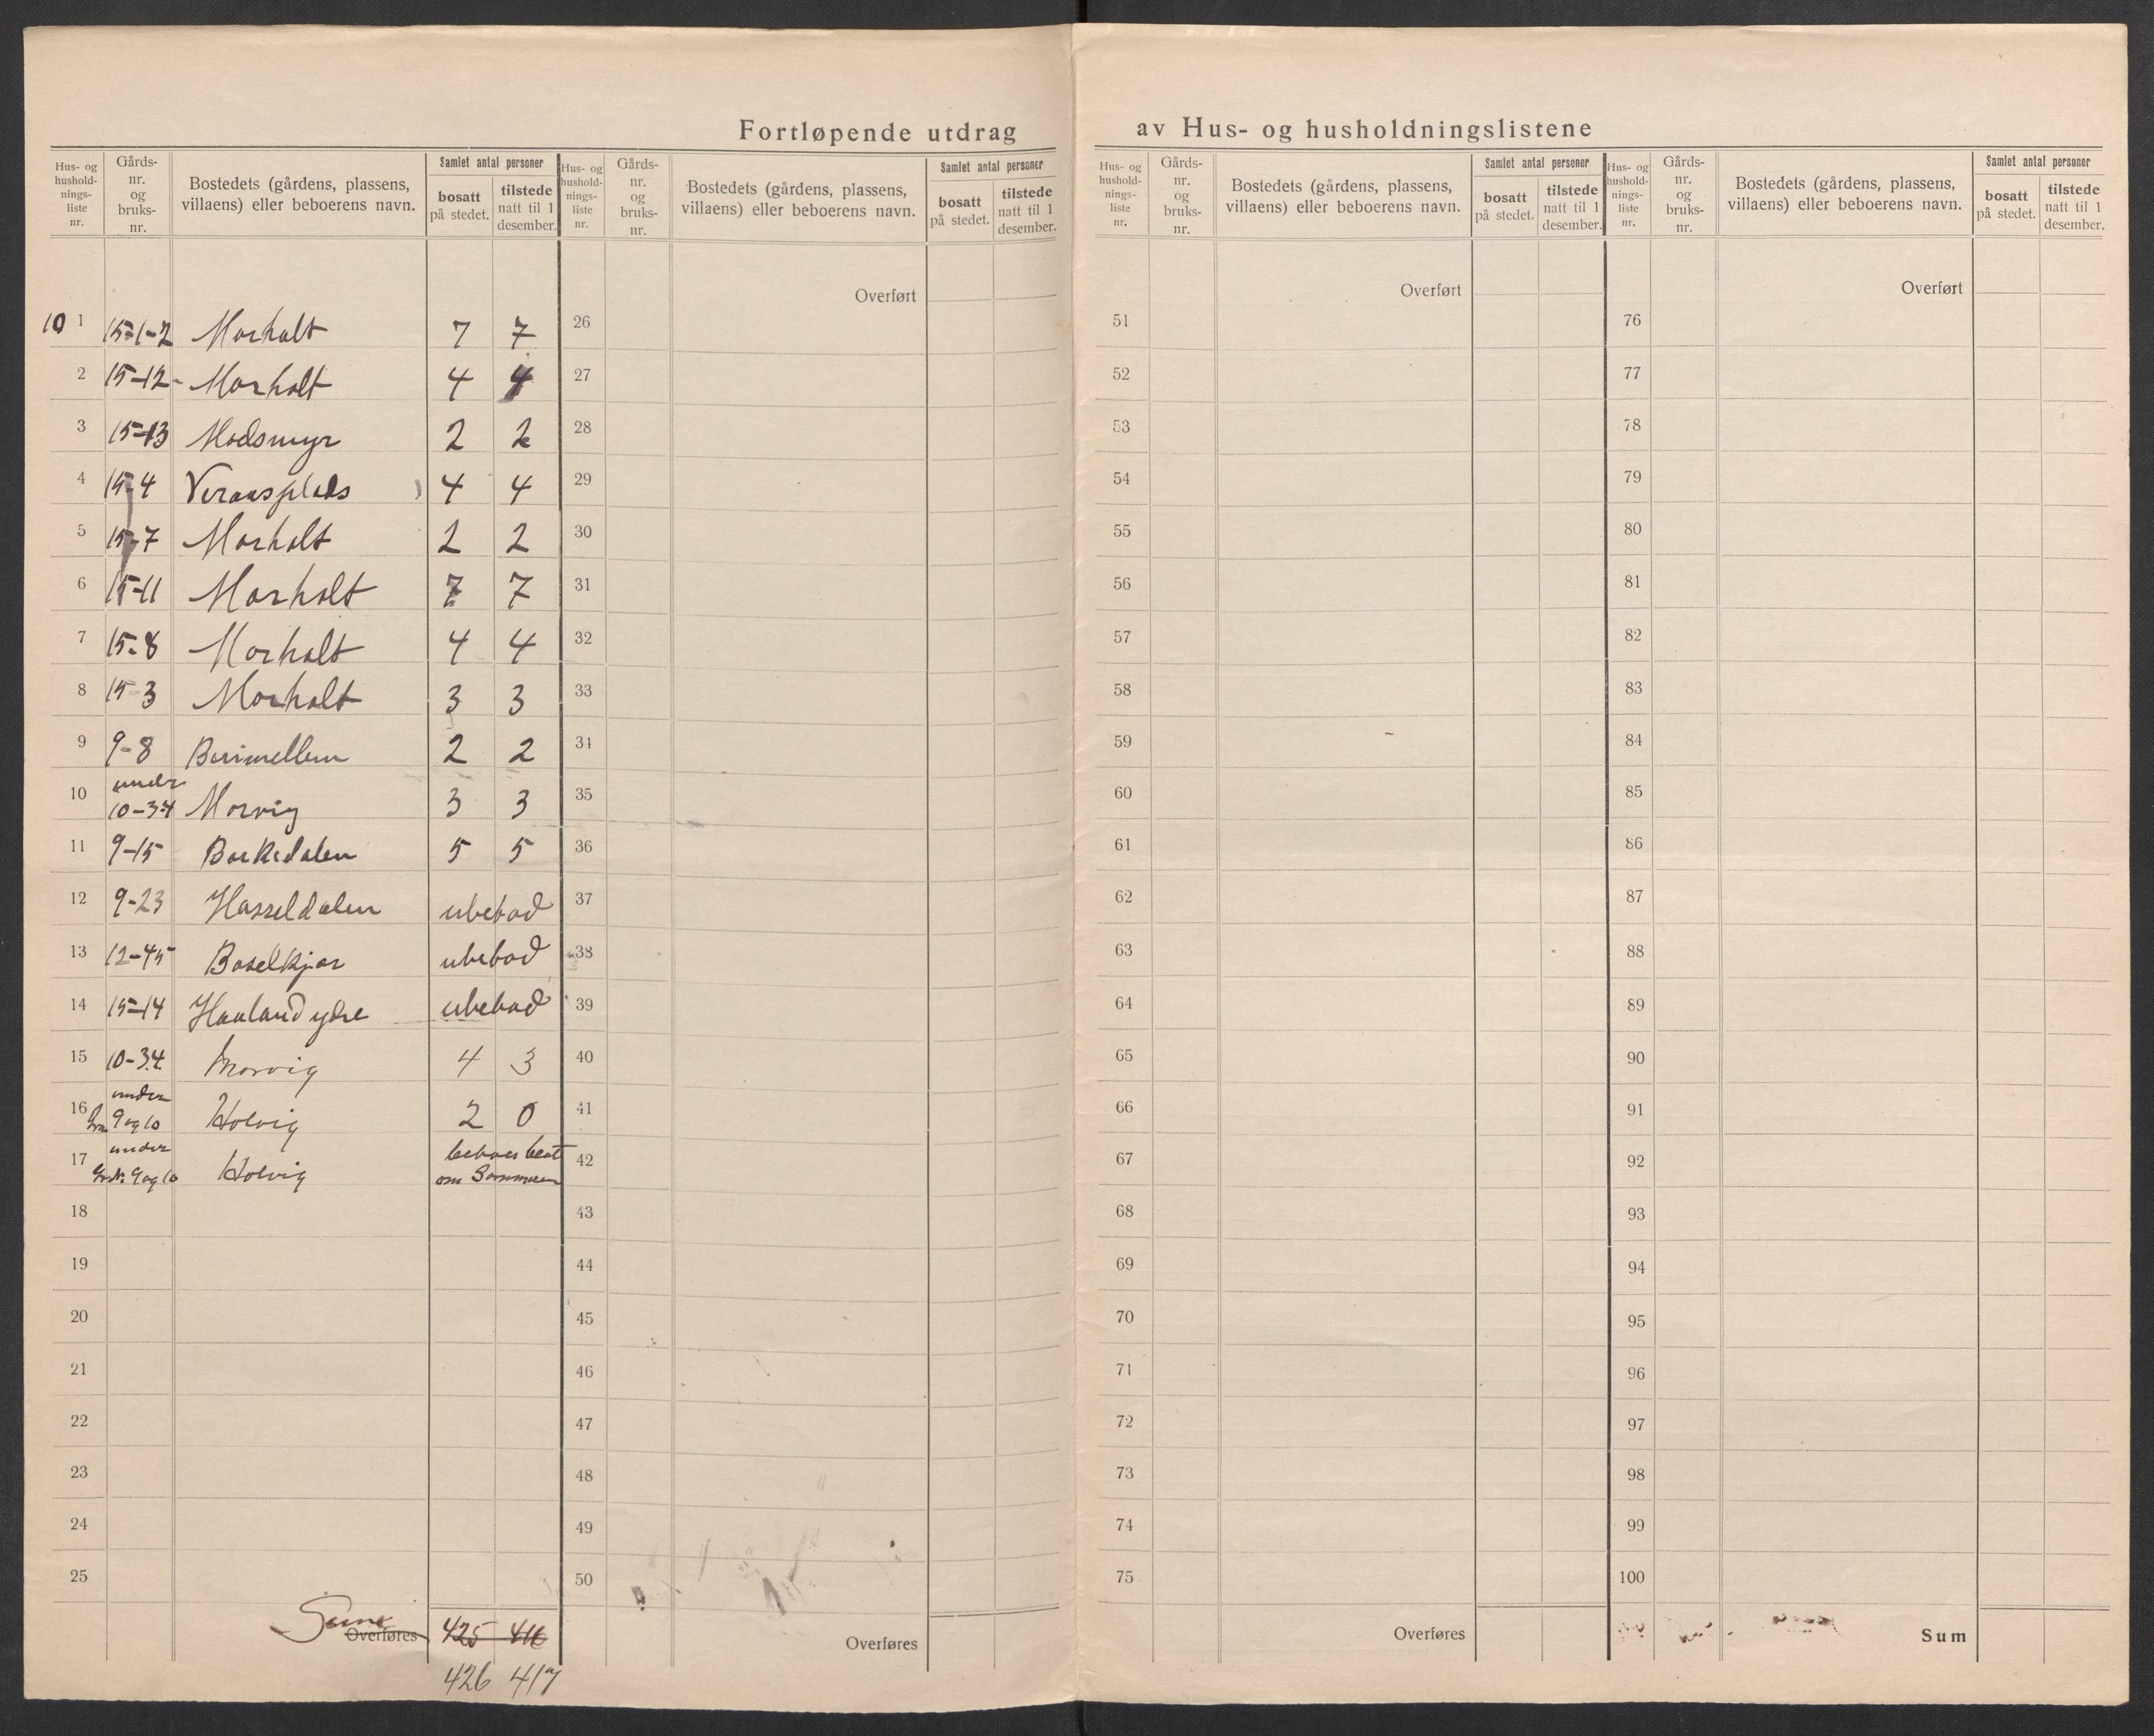 Fortløpende utdrag av Hus- og husholdningslistene
Hus- og hushold- nings- liste nr. | Gårds- nr. og bruks- nr. | Bostedets (gårdens, plassens, villaens) eller beboerens navn. | Samlet antal personer | bosatt på stedet. | tilstede natt til 1 desember.
Hus- og hushold- nings- liste nr. | Gårds- nr. og bruks- nr. | Bostedets (gårdens, plassens, villaens) eller beboerens navn. | Samlet antal personer | bosatt på stedet. | tilstede natt til 1 desember.
Hus- og hushold- nings- liste nr. | Gårds- nr. og bruks- nr. | Bostedets (gårdens, plassens, villaens) eller beboerens navn. | Samlet antal personer | bosatt på stedet. | tilstede natt til 1 desember.
Hus- og hushold- nings- liste nr. | Gårds- nr. og bruks- nr. | Bostedets (gårdens, plassens, villaens) eller beboerens navn. | Samlet antal personer | bosatt på stedet. | tilstede natt til 1 desember.
10 1 15-1-2 Morholt 7 7
2 15-12- Morholt 4 4
3 15-13 Modsmyr 2 2
4 15-4 4 4
5 15-7 Morholt 2 2
6 15-11 Morholt 7 7
7 15-8 Morholt 4 4
8 15-3 Morholt 3 3
9 9-8 2 2
10 under 10-34 Morvig 3 3
11 9-15 Barkedalen 5 5
12 9-23 Hasseldalen ubebod
13 12-45 Boselkjær ubebod
14 15-14 Haaland ydre ubebod
15 10-3.4. Morvig 4 3
16 under 9 og 10 Holvig 2 0
17 under Grdr. 9 og 10 Holvig beboes bent om Sommeren
18
19
20
21
22
23
24
25
Sum Overføres 425 416
426 417
Overført
26
27
28
29
30
31
32
33
34
35
36
37
38
39
40
41
42
43
44
45
46
47
48
49
50
Overføres
Overført
51
52
53
54
55
56
57
58
59
60
61
62
63
64
65
66
67
68
69
70
71
72
73
74
75
Overføres
Overført
76
77
78
79
80
81
82
83
84
85
86
87
88
89
90
91
92
93
94
95
96
97
98
99
100
Sum